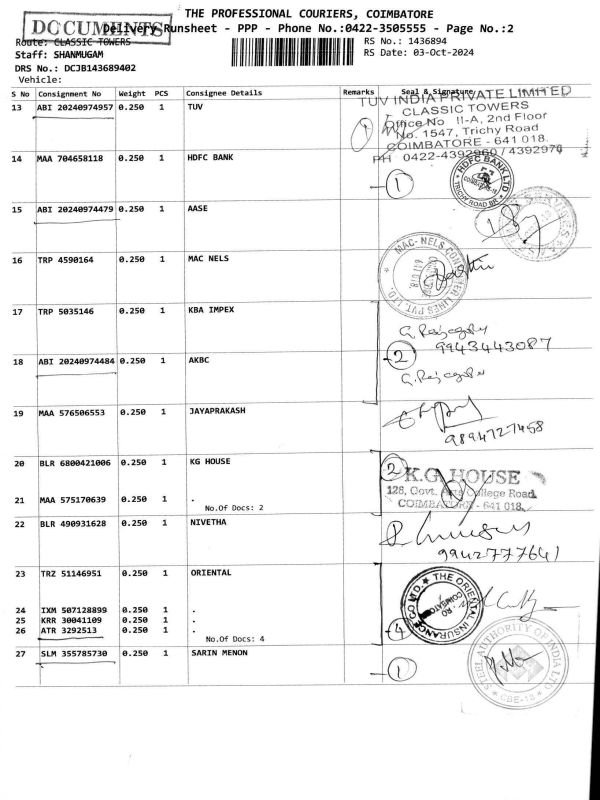 THE PROFESSIONAL COURIERS, COIMBATORE
DOCUMENTS
Delivery Runsheet - PPP - Phone No.:0422-3505555 - Page No.:2
Route: CLASSIC TOWERS
RS No.: 1436894
Staff: SHANMUGAM
RS Date: 03-Oct-2024
DRS No.: DCJB143689402
Vehicle:
S No Consignment No Weight PCS Consignee Details Remarks Seal & Signature
13 ABI 20240974957 0.250 1 TUV
TUV INDIA PRIVATE LIMITED
CLASSIC TOWERS
Office No II-A, 2nd Floor
No. 1547, Trichy Road
COIMBATORE - 641 018.
PH 0422-4392960 / 4392976
14 MAA 704658118 0.250 1 HDFC BANK
1
HDFC BANK LTD
TRICHY ROAD BR
15 ABI 20240974479 0.250 1 AASE
16 TRP 4590164 0.250 1 MAC NELS
MAC-NELS CONTAINER LINES PVT. LTD.
17 TRP 5035146 0.250 1 KBA IMPEX
9943443087
2
18 ABI 20240974484 0.250 1 AKBC
19 MAA 576506553 0.250 1 JAYAPRAKASH
9894727458
20 BLR 6800421006 0.250 1 KG HOUSE
2
K.G. HOUSE
128, Govt. Arts College Road,
COIMBATORE - 641 018.
21 MAA 575170639 0.250 1 .
No.Of Docs: 2
22 BLR 490931628 0.250 1 NIVETHA
9942777641
23 TRZ 51146951 0.250 1 ORIENTAL
THE ORIENTAL INSURANCE CO LTD.
24 IXM 507128899 0.250 1 .
25 KRR 30041109 0.250 1 .
26 ATR 3292513 0.250 1 .
No.Of Docs: 4
4
27 SLM 355785730 0.250 1 SARIN MENON
1
STEEL AUTHORITY OF INDIA LTD
CBE-18